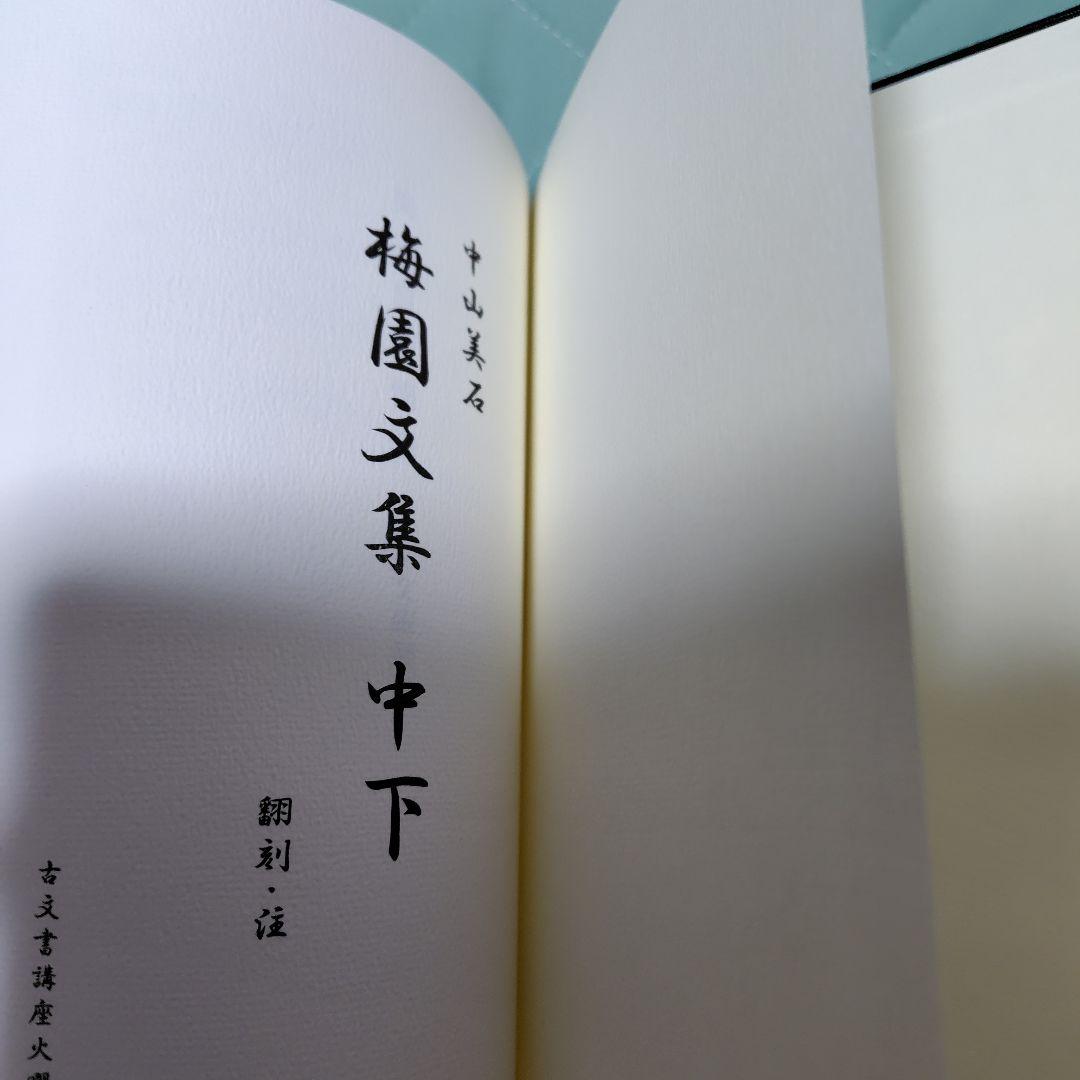 中山美石
梅園文集 中下
翻刻・注
古文書講座火曜